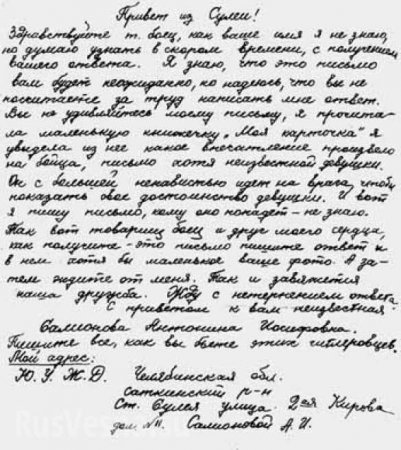 Привет из Сулеи!
Здравствуйте т. боец, как ваше имя я не знаю,
но думаю узнать в скором времени, с получением
вашего ответа. Я знаю, что это письмо
вам будет неожиданно, но надеюсь, что вы не
посчитаете за труд написать мне ответ.
Вы не удивляйтесь моему письму, я прочита-
ла маленькую книжечку „Моя карточка" я
увидела из нее какое впечатление произвело
на бойца, письмо хотя неизвестной девушки.
Он с большей ненавистью идет на врага, чтобы
показать свое достоинство девушки. И вот
я пишу письмо, кому оно попадет – не знаю.
Так вот товарищ боец и друг моего сердца,
как получите – это письмо пишите ответ и
в нем хотя бы маленькое ваше фото. А за-
тем ждите от меня. Так и завяжется
наша дружба. Жду с нетерпением ответа.
С приветом к вам неизвестная:
Салионова Антонина Иосифовна.
Пишите все, как вы бьете этих гитлеровцев.
Мой адрес:
Ю. У. Ж. Д. Челябинская обл.
Саткинский р-н
Ст. Сулея улица 2ая Кирова
дом №11. Салионовой А. И.